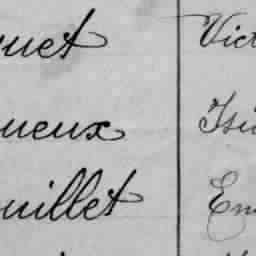 quet Vict
ueux Isi
uillet Em